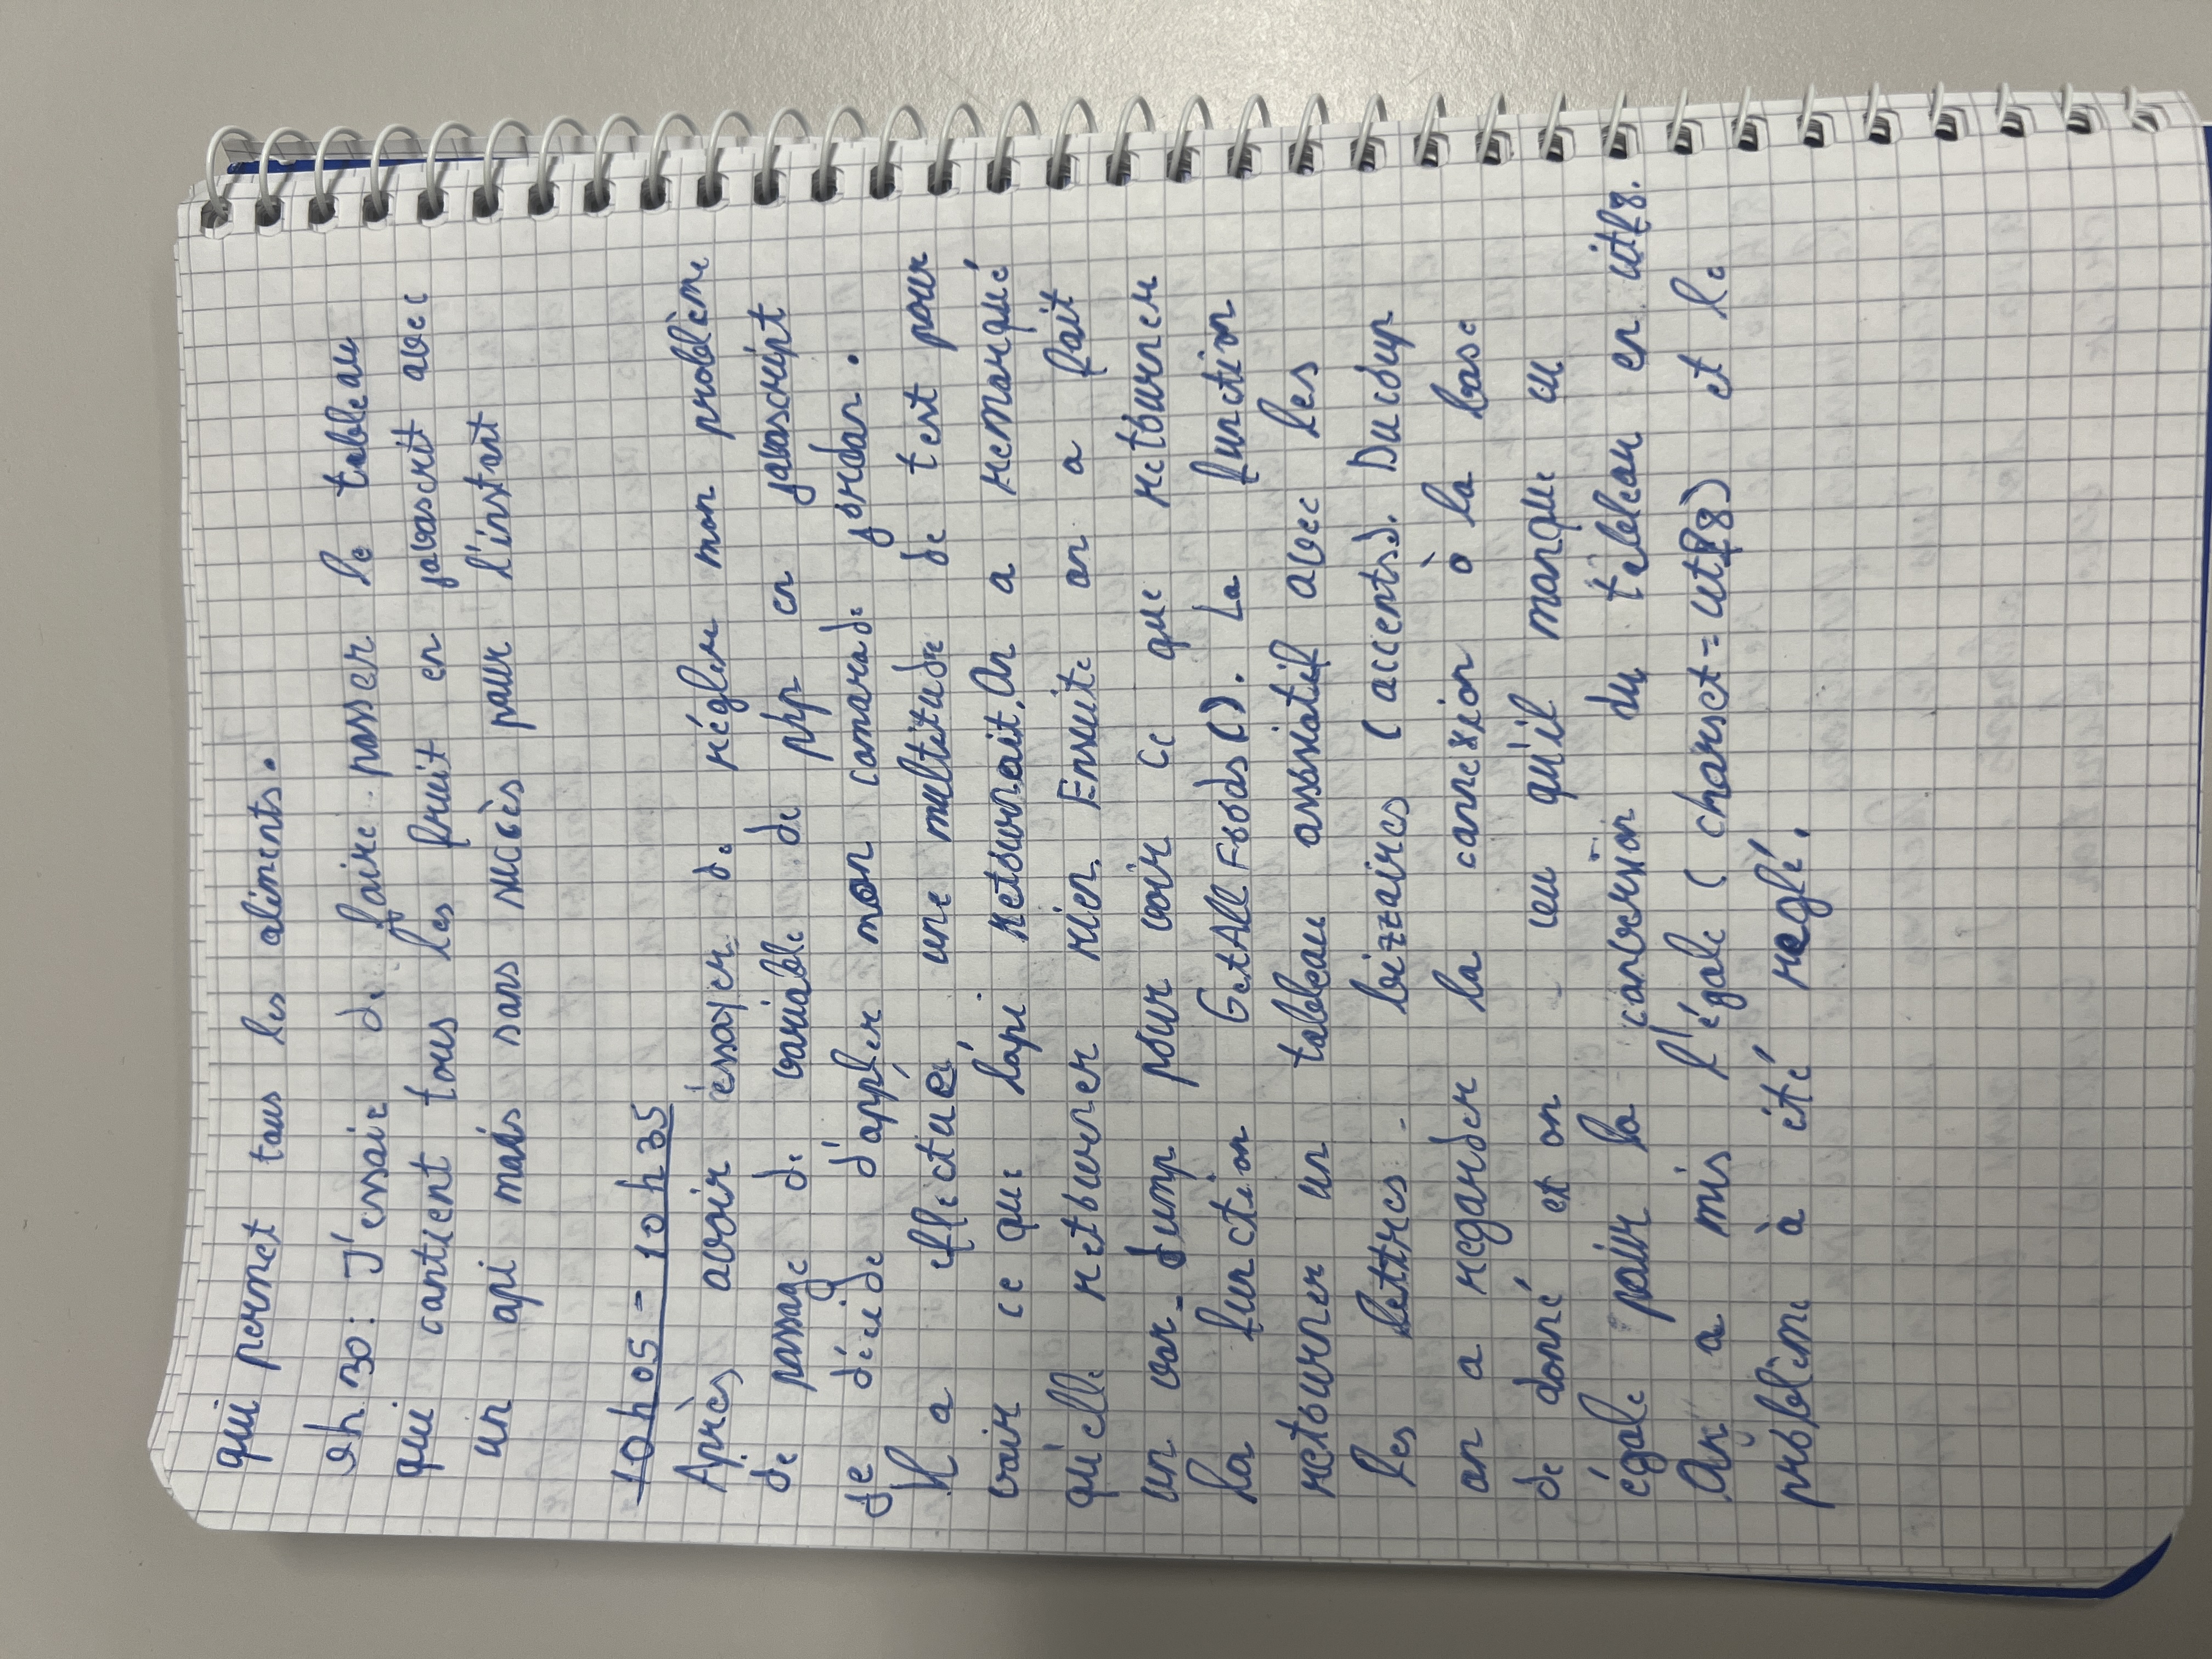 qui permet tous les aliments.
9h30: J'essaie de faire passer le tableau
qui contient tous les fruit en javascrit avec
un api mais sans succès pour l'instant
10h05 - 10h35
Après avoir éssayer de régler mon problème
de passage de variable de php en javascript
je décide d'appler mon camarade jordan.
Il a effectué, une multitude de test pour
voir ce que l'api retournait. On a remarqué
qu'elle retourner rien. Ensuite on a fait
un var_dump pour voir ce que retourner
la function GetAllFoods(). La function
retourner un tableau assosiatif avec les
les lettres bizzaires (accents). Ducoup
on a regarder la connexion à la base
de donné et on vu qu'il manque un
égale pour la conversion du tableau en utf8.
On a mis l'égale (charset=utf8) et le
problème à été reglé.